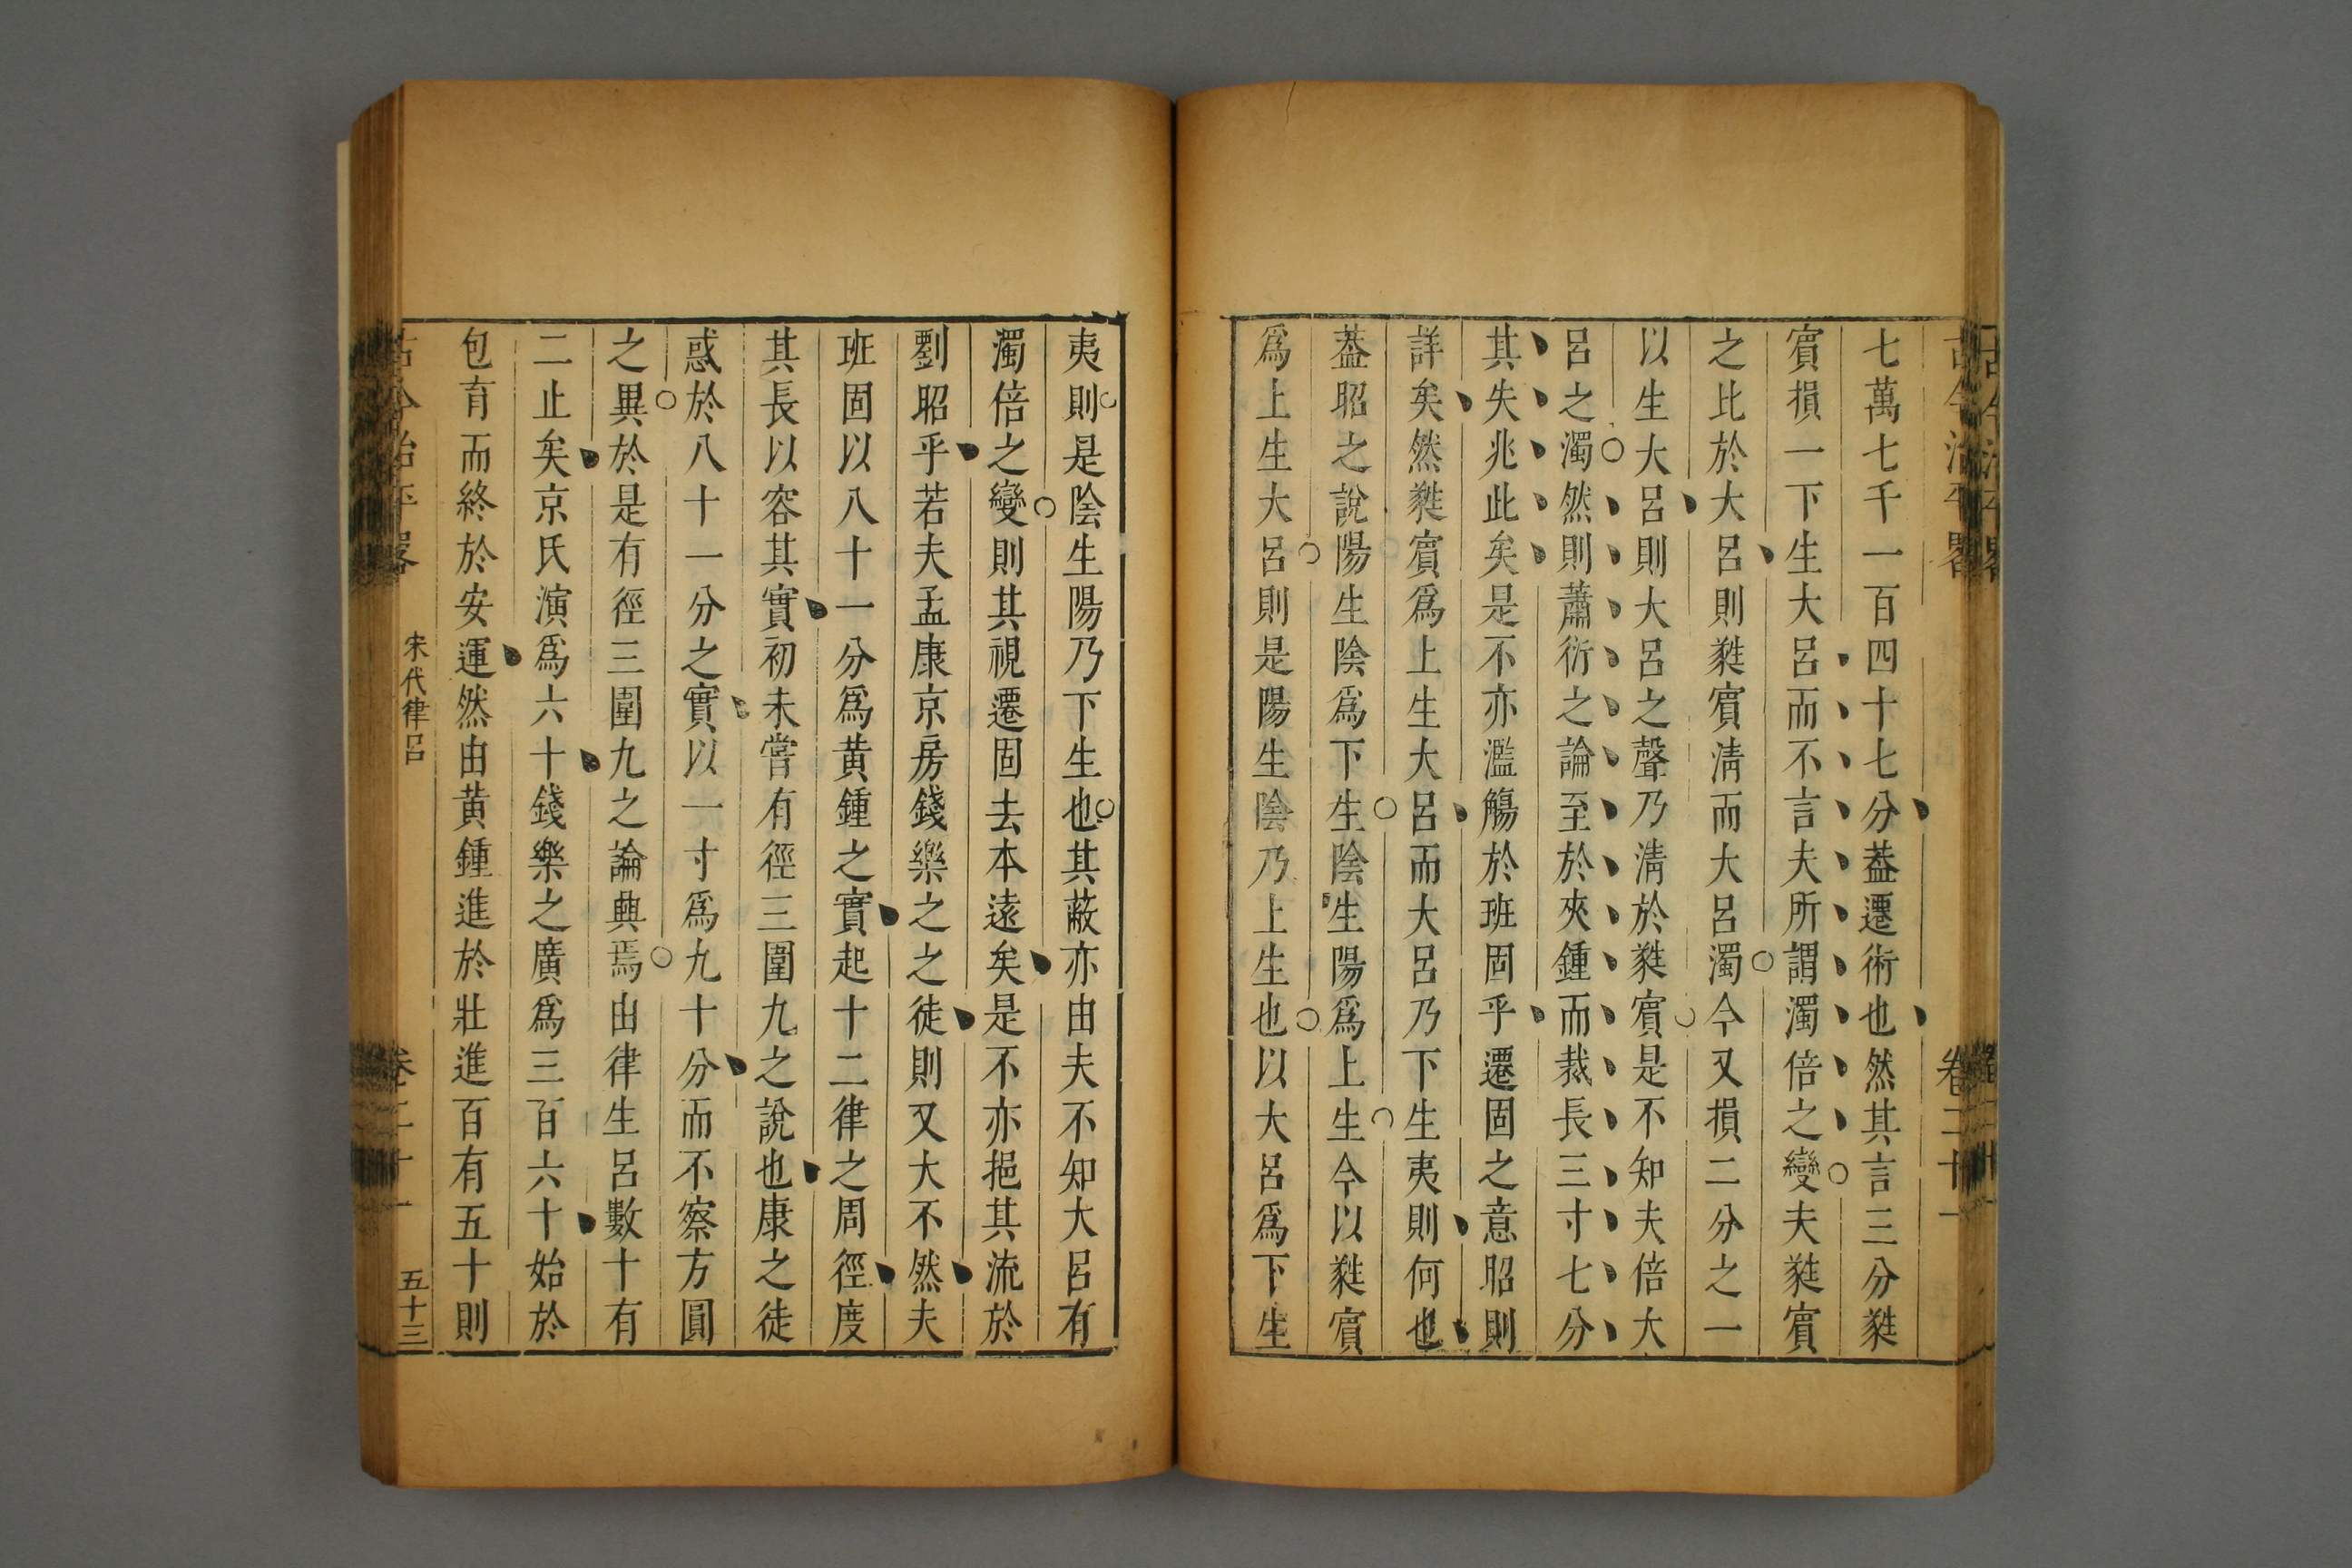 古今治平畧 卷二十一
七萬七千一百四十七分葢遷術也然其言三分蕤
賓損一下生大呂而不言夫所謂濁倍之變夫蕤賓
之比於大呂則蕤賓清而大呂濁今又損二分之一
以生大呂則大呂之聲乃清於蕤賓是不知夫倍大
呂之濁然則蕭衍之論至於夾鍾而裁長三寸七分
其失兆此矣是不亦濫觴於班固乎遷固之意昭則
詳矣然蕤賓爲上生大呂而大呂乃下生夷則何也
葢昭之說陽生陰爲下生陰生陽爲上生今以蕤賓
爲上生大呂則是陽生陰乃上生也以大呂爲下生
夷則是陰生陽乃下生也其蔽亦由夫不知大呂有
濁倍之變則其視遷固去本遠矣是不亦挹其流於
劉昭乎若夫孟康京房錢樂之之徒則又大不然夫
班固以八十一分爲黄鍾之實起十二律之周徑度
其長以容其實初未嘗有徑三圍九之說也康之徒
惑於八十一分之實以一寸爲九十分而不察方圓
之異於是有徑三圍九之論興焉由律生呂數十有
二止矣京氏演爲六十錢樂之廣爲三百六十始於
包育而終於安運然由黄鍾進於壯進百有五十則
古今治平畧 宋代律呂 卷二十一 五十三